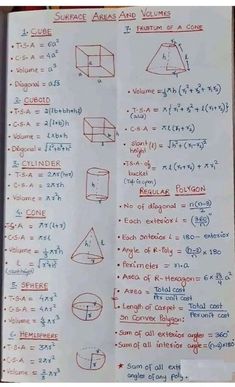 SURFACE AREAS AND VOLUMES
1. CUBE
• T.S.A = 6a²
• C.S.A = 4a²
• Volume = a³
• Diagonal = a√3
2. CUBOID
• T.S.A = 2(lb+bh+hl)
• C.S.A = 2(l+b)h
• Volume = lxbxh
• Diagonal = √l²+b²+h²
3. CYLINDER
• T.S.A = 2πr(h+r)
• C.S.A = 2πrh
• Volume = πr²h
4. CONE
• T.S.A = πr(l+r)
• C.S.A = πrl
• Volume = 1/3 πr²h
• l = √h²+r²
5. SPHERE
• T.S.A = 4πr²
• C.S.A = 4πr²
• Volume = 4/3 πr³
6. HEMISPHERE
• T.S.A = 3πr²
• C.S.A = 2πr²
• Volume = 2/3 πr³
7. FRUSTUM OF A CONE
• Volume = 1/3 πh (r₁²+r₂²+r₁r₂)
• T.S.A = π{r₁²+r₂²+l(r₁+r₂)}
• C.S.A = πl(r₁+r₂)
• Slant height(l) = √h²+(r₁-r₂)²
• T.S.A of bucket = πl(r₁+r₂)+πr₂²
REGULAR POLYGON
• No of diagonal = n(n-3)/2
• Each exterior ∠ = (360°/n)
• Each interior ∠ = 180 - exterior
• Perimeter = n×a
• Area of R-Hexagon = 6×√3/4 a²
• Area = Total cost/Per unit cost
• Length of carpet = Total cost/Per unit cost
In Convex Polygon:
• Sum of all exterior angles = 360°
• Sum of all interior angle = (n-2)×180
★ Sum of all ext angles of any poly.